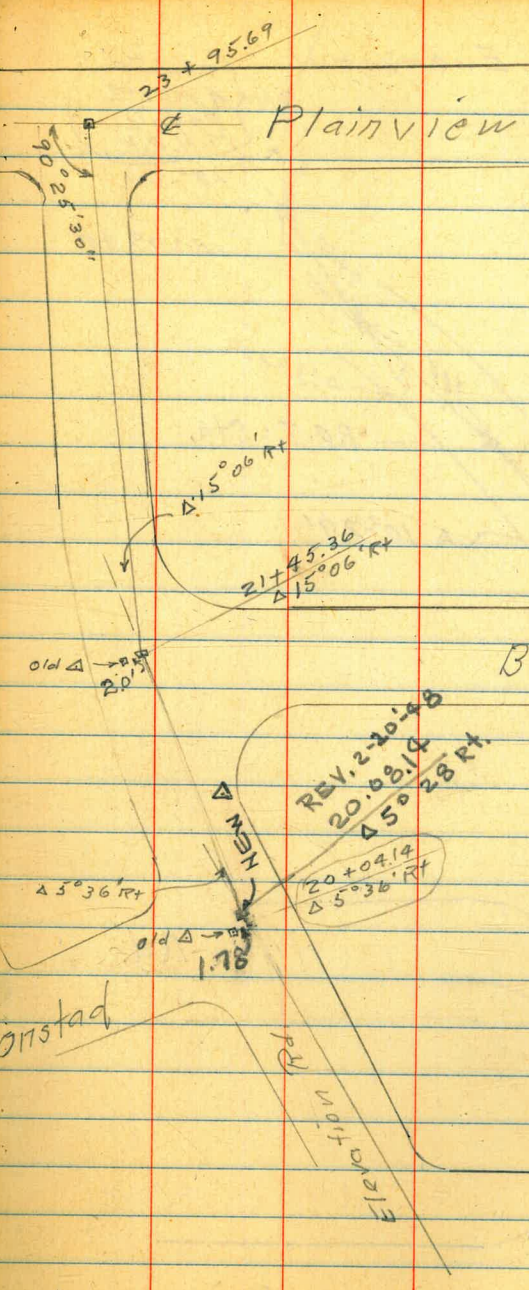 23 + 95.69
℄ Plainview
90°25'30"
Δ 15°06' Rt
21+45.36
Δ 15°06' Rt
old Δ
2.0'
B
REV. 2-20-48
20.08.14
Δ 5° 28 Rt.
NEW Δ
20+04.14
Δ 5°36' Rt
Δ 5°36' Rt
old Δ
1.78
onstad
Elevation Rd